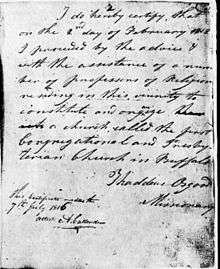 I do hereby certify, that
on the 2nd day of February 1812
I proceeded by the advice &
with the assistance of a num
ber of professors of Religion
residing in this vicinity to
constitute and organize
a church called the first
congregational and Presby
terian Church in Buffalo
Thaddeus Osgood
Missionary
this
7th July 1816